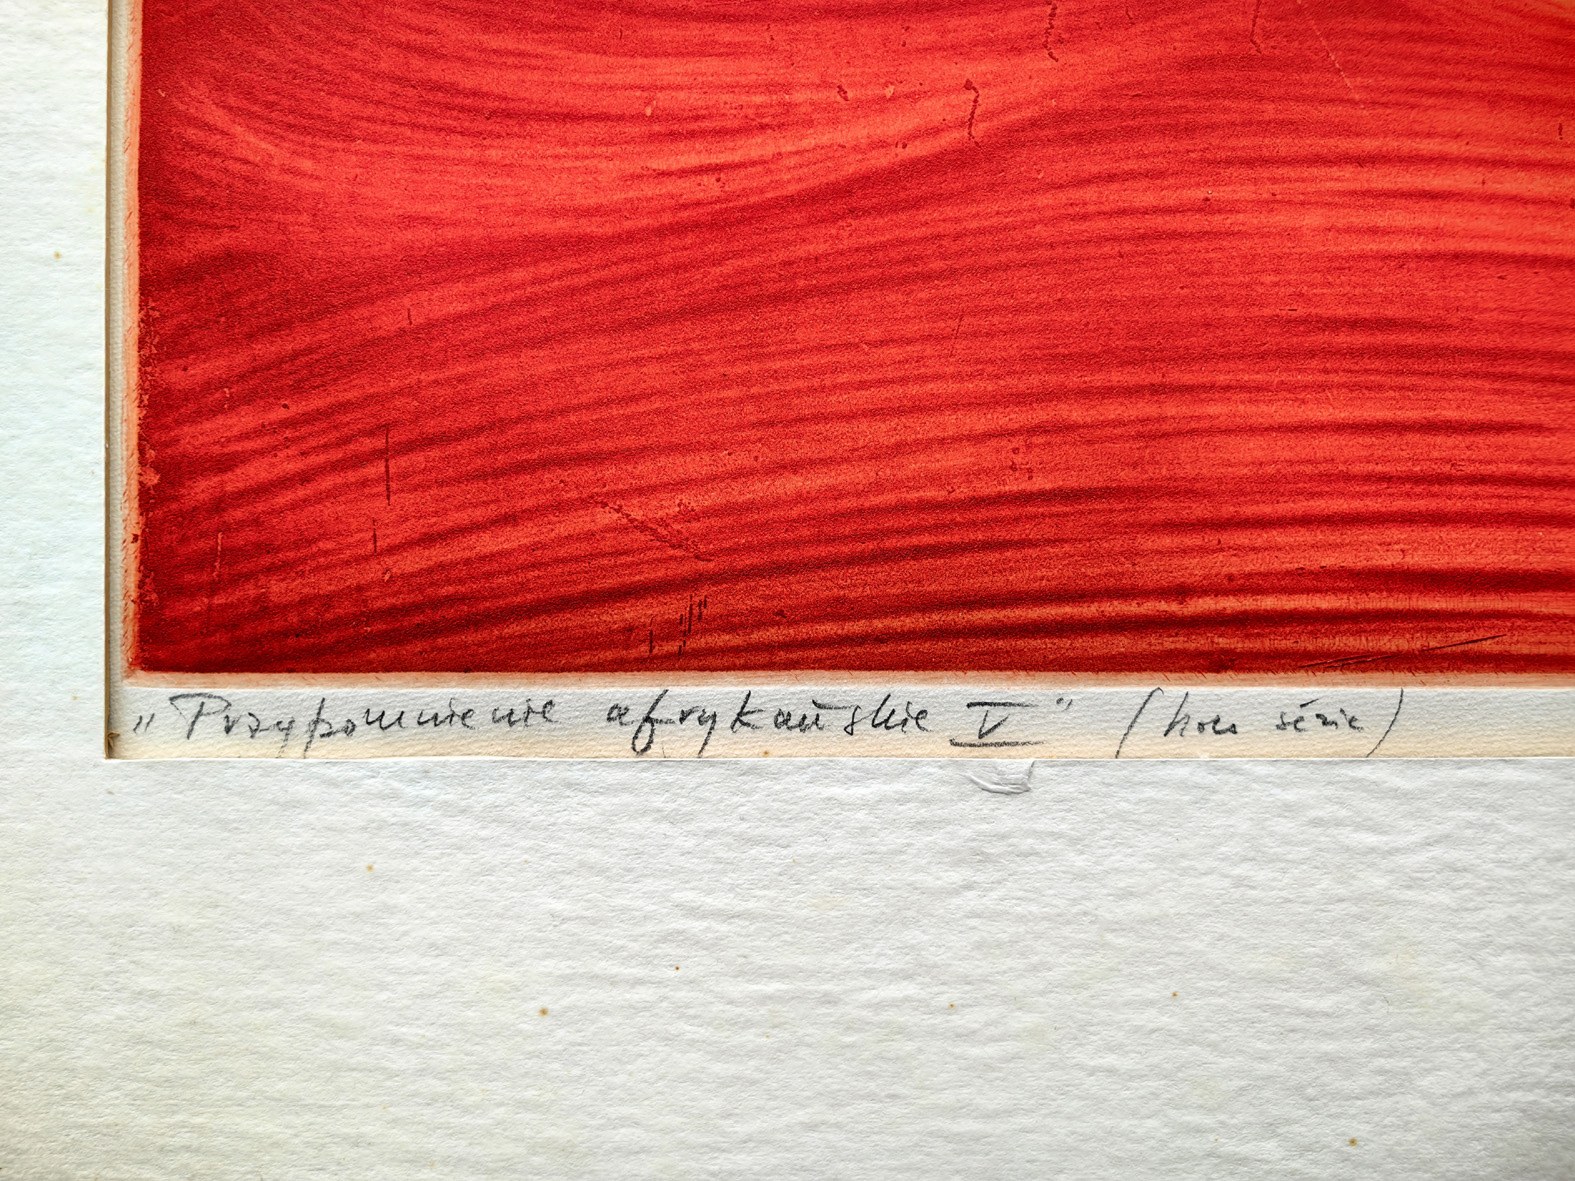 „Przypomnienie afrykańskie V" (hors série)